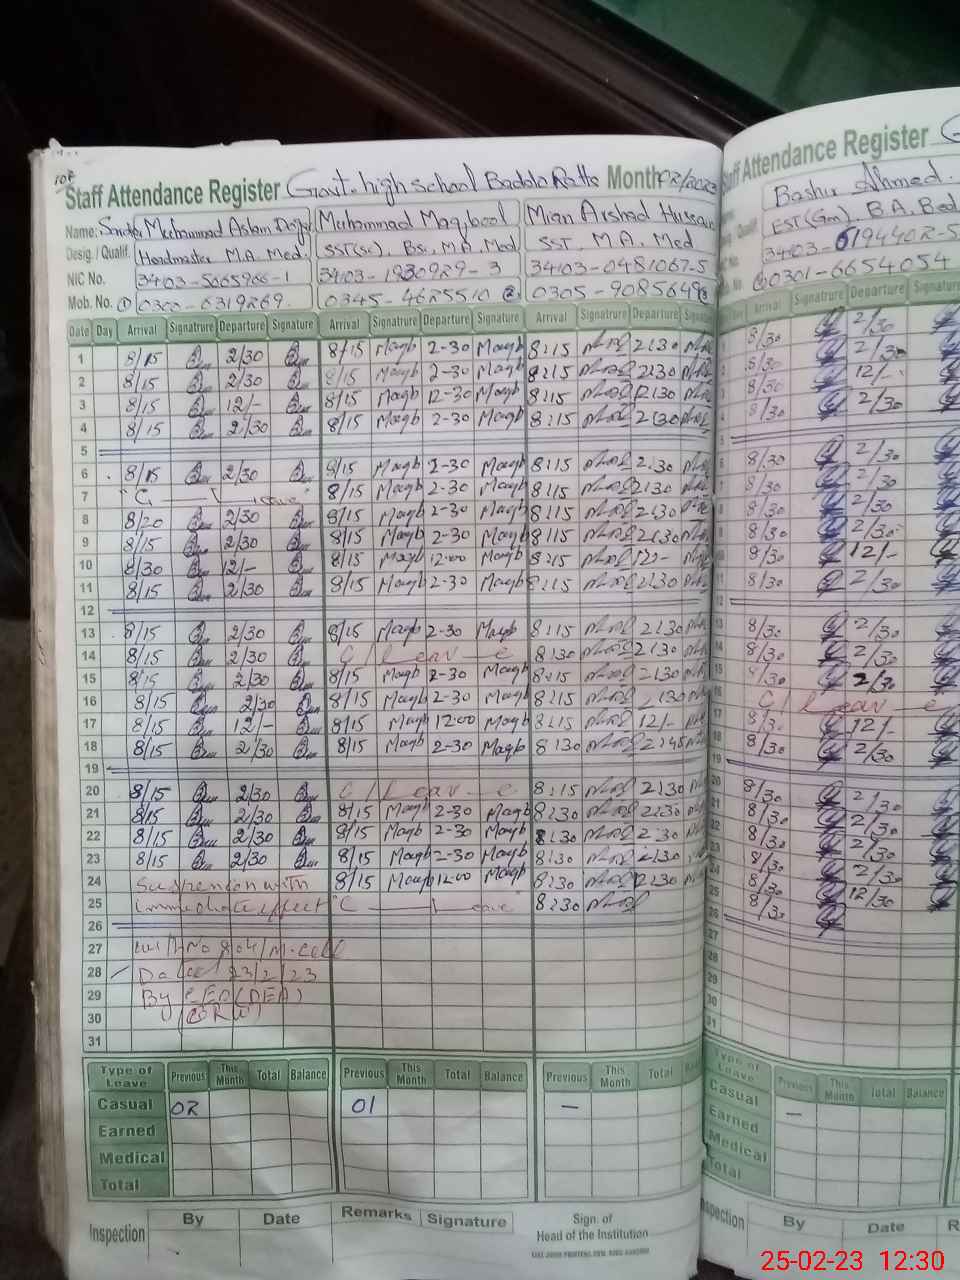 108
Staff Attendance Register Govt. high School Baddo Ratta Month 02/2023
Name: Muhammad Aslam Muhammad Maqbool Mian Arshad Hussain
Desig. / Qualif. Headmaster M.A. Med. SST(SC), BSc, M.A. Med SST, M.A. Med
NIC No. 34103-5065966-1 34103-1930929-3 34103-0481067-5
Mob. No. ① 0300-6319269. 0345-4625510 ② 0305-9085649
Date Day Arrival Signatrure Departure Signature Arrival Signatrure Departure Signature Arrival Signatrure Departure
1 8/15 2/30 8/15 Maqb 2-30 Maqb 8:15 2:30
2 8/15 2/30 8/15 Maqb 2-30 Maqb 8:15 2:30
3 8/15 12/- 8/15 Maqb 12-30 Maqb 8:15 2:30
4 8/15 2/30 8/15 Maqb 2-30 Maqb 8:15 2:30
5
6 8/15 2/30 8/15 Maqb 2-30 Maqb 8:15 2:30
7 "C Leave" 8/15 Maqb 2-30 Maqb 8:15 2:30
8 8/20 2/30 8/15 Maqb 2-30 Maqb 8:15 2:30
9 8/15 2/30 8/15 Maqb 2-30 Maqb 8:15 2:30
10 8/30 12/- 8/15 Maqb 12-00 Maqb 8:15
11 8/15 2/30 8/15 Maqb 2-30 Maqb 8:15 2:30
12
13 8/15 2/30 8/15 Maqb 2-30 Maqb 8:15 2:30
14 8/15 2/30 C/Leave 8:30 2:30
15 8/15 2/30 8/15 Maqb 2-30 Maqb 8:15 2:30
16 8/15 2/30 8/15 Maqb 2-30 Maqb 8:15 2:30
17 8/15 12/- 8/15 Maqb 12-00 Maqb 8:15 12/-
18 8/15 2/30 8/15 Maqb 2-30 Maqb 8:30 2:45
19
20 8/15 2/30 C/Leave 8:15 2:30
21 8/15 2/30 8/15 Maqb 2-30 Maqb 8:30 2:30
22 8/15 2/30 8/15 Maqb 2-30 Maqb 8:30 2:30
23 8/15 2/30 8/15 Maqb 2-30 Maqb 8:30 2:30
24 Suspension with 8/15 Maqb 12-00 Maqb 8:30 2:30
25 immediate effect "C Leave" 8:30
26
27
28 Dated 23/2/23
29 By CEO (DEA)
30 (GRW)
31
Type of Leave Previous This Month Total Balance Previous This Month Total Balance Previous This Month Total
Casual 02 01 —
Earned
Medical
Total
Inspection By Date Remarks Signature Sign. of Head of the Institution
Staff Attendance Register
Bashir Ahmed.
EST(Gm), B.A, Bed
34103-6194402-5
0301-6654054
Arrival Signatrure Departure Signature
8/30 2/30
8/30 2/30
8/30 12/-
8/30 2/30
8/30 2/30
8/30 2/30
8/30 2/30
8/30 2/30
8/30 12/-
8/30 2/30
8/30 2/30
8/30 2/30
8/30 2/30
C/Leave
8/30 12/-
8/30 2/30
8/30 2/30
8/30 2/30
8/30 2/30
8/30 2/30
8/30 12/30
8/30
Type of Leave Previous This Month Total Balance
Casual —
Earned
Medical
Total
Inspection By Date
25-02-23 12:30